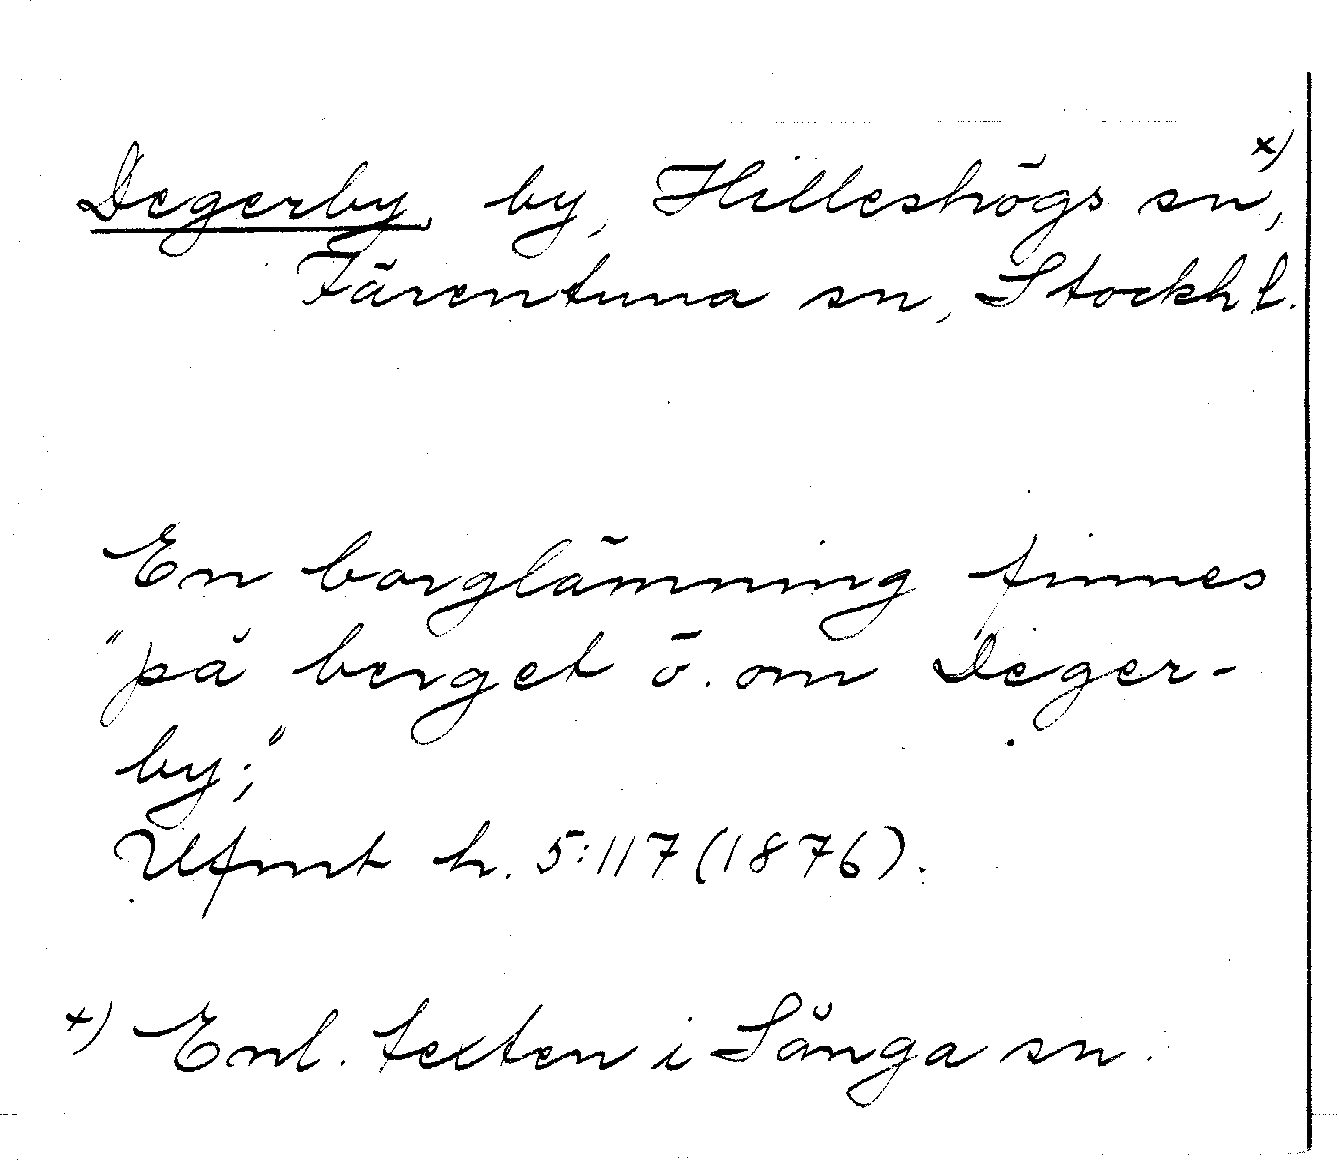 Degerby, by, Hilleshögs sn x),
Färentuna sn, Stockh l.
En borglämning finnes
"på berget ö. om Deger-
by;"
Ufmt h. 5:117 (1876).
x) Enl. texten i Sånga sn.